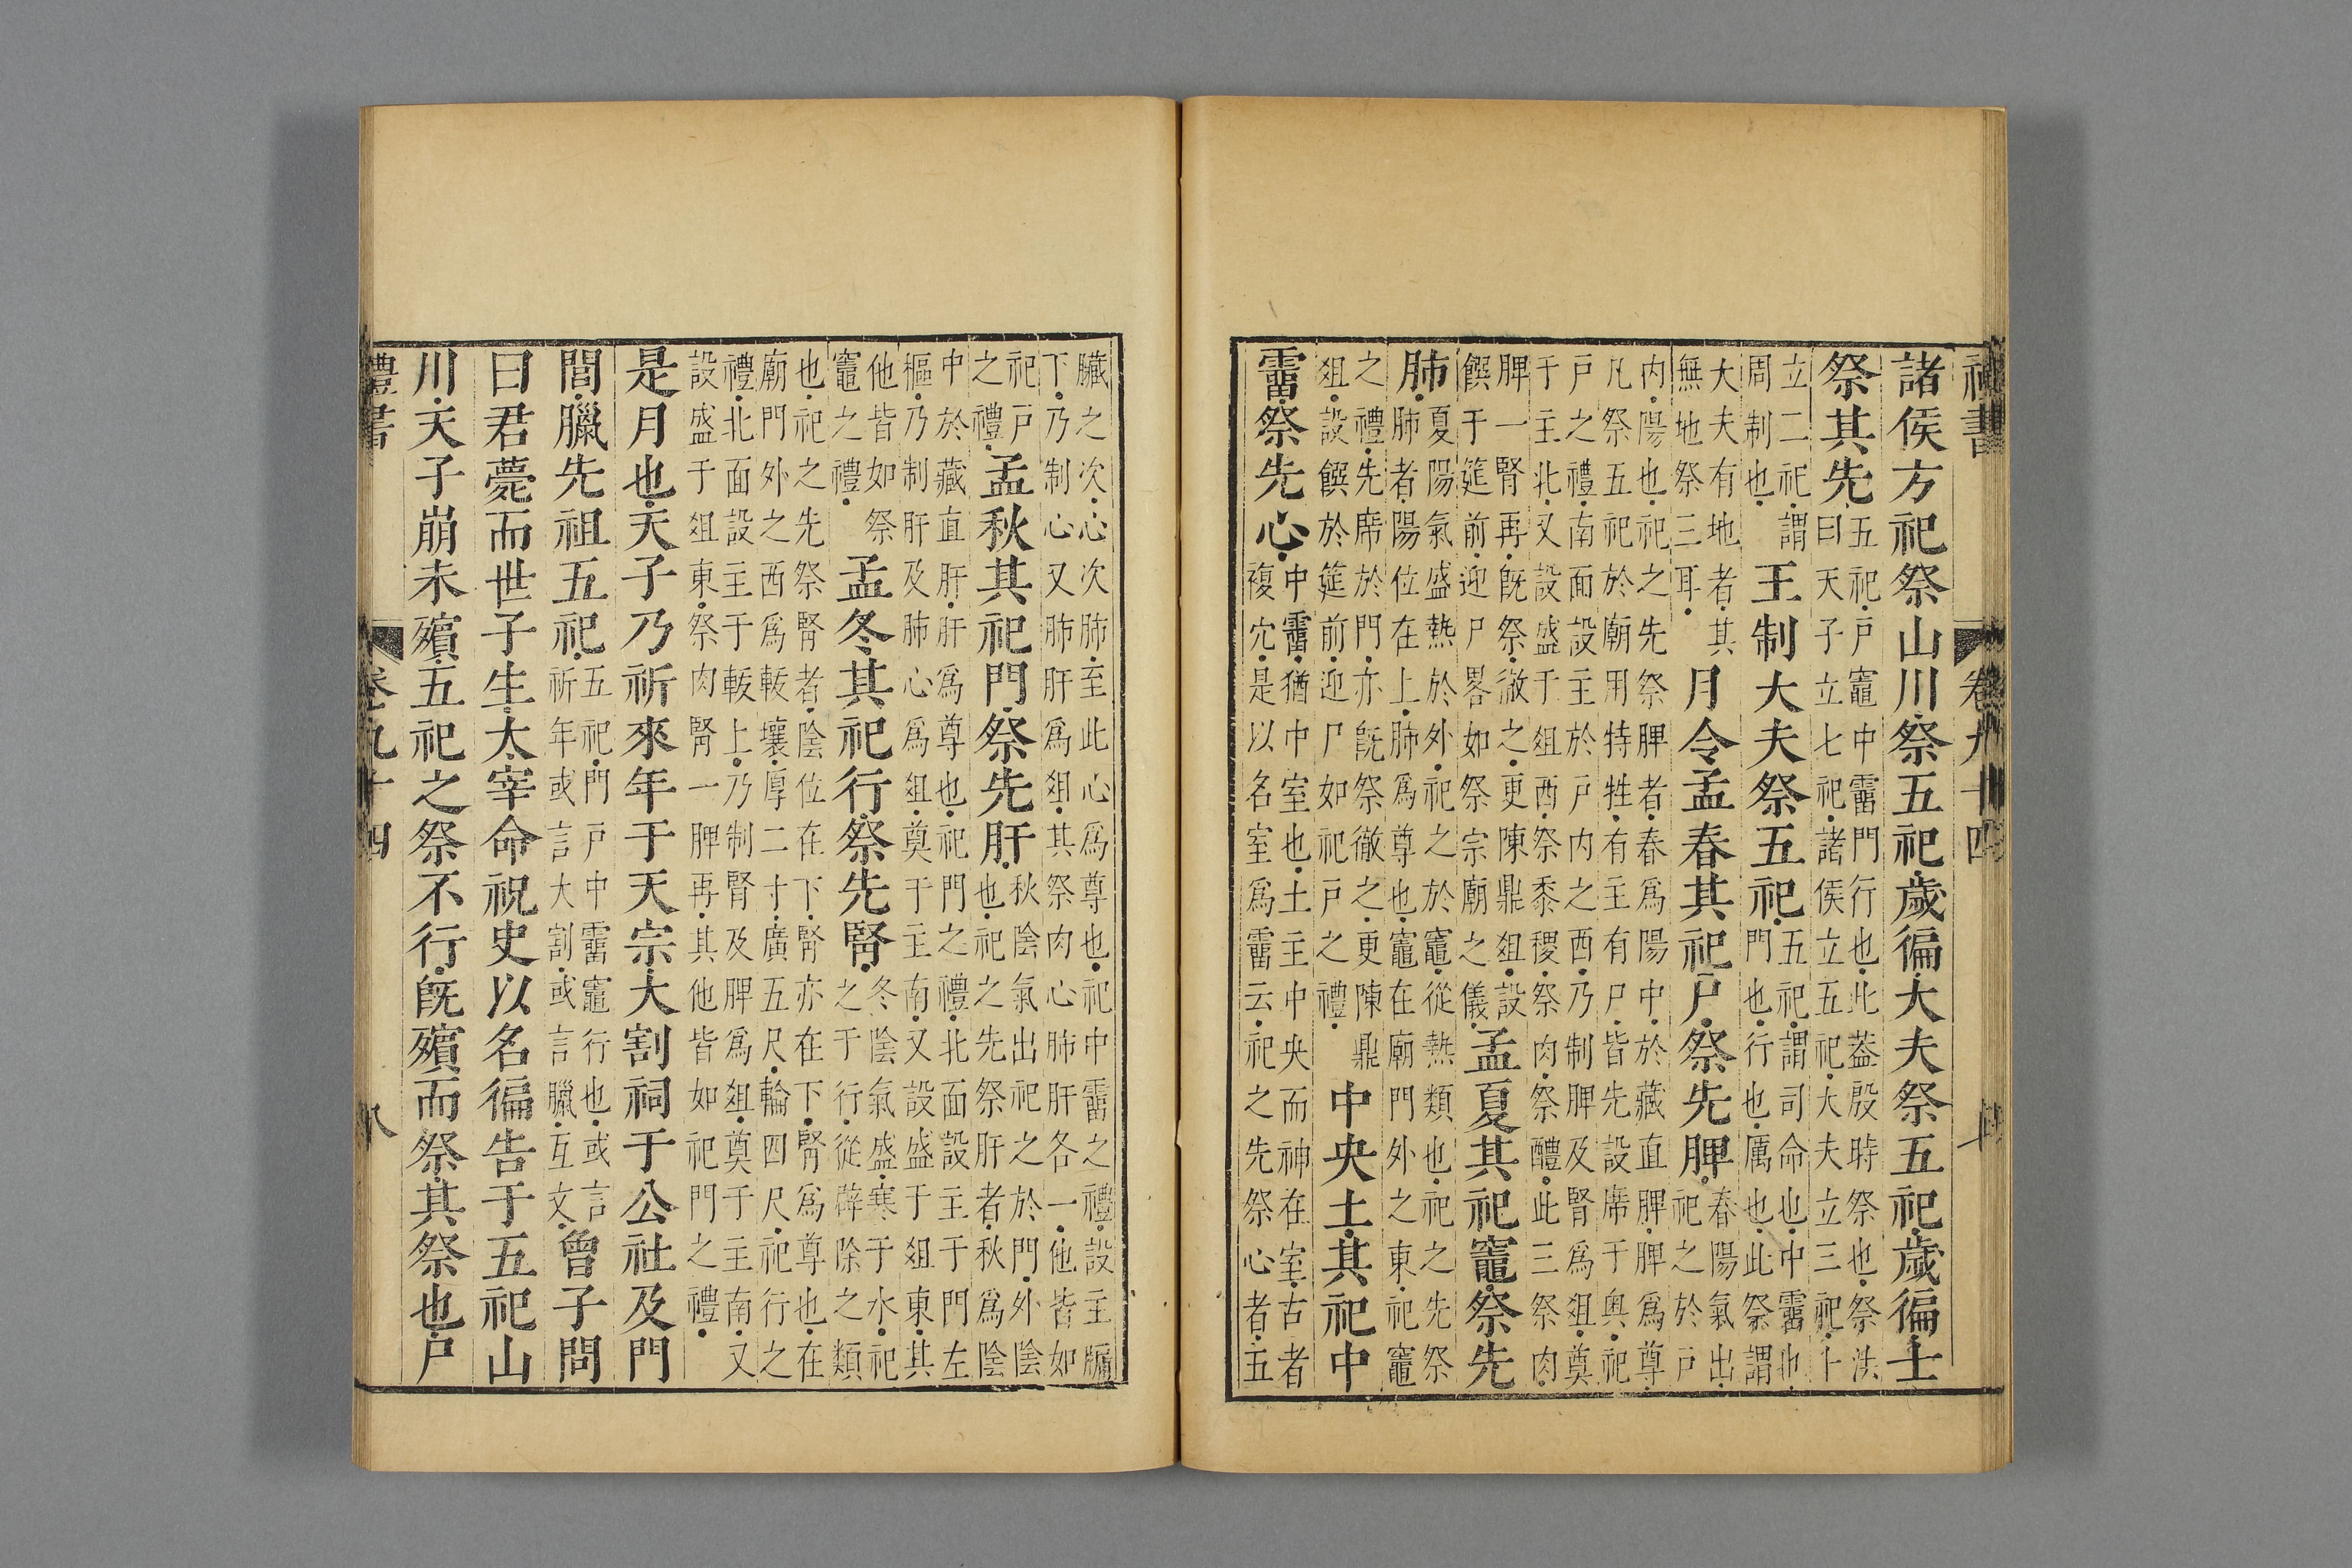 諸侯方祀祭山川祭五祀歲徧大夫祭五祀歲徧士
祭其先五祀戶竈中霤門行也此葢殷時祭也祭法曰天子立七祀諸侯立五祀大夫立三祀士
立二祀謂周制也王制大夫祭五祀五祀謂司命也中霤也門也行也厲也此祭謂
大夫有地者其無地祭三耳月令孟春其祀戶祭先脾春陽氣出祀之於戶
内陽也祀之先祭脾者春爲陽中於藏直脾脾爲尊凡祭五祀於廟用特牲有主有尸皆先設席于奧祀
戶之禮南面設主於戶内之西乃制脾及腎爲俎奠于主北又設盛于俎西祭黍稷祭肉祭醴此三祭肉
脾一腎再旣祭徹之更陳鼎俎設饌于筵前迎尸畧如祭宗廟之儀孟夏其祀竈祭先
肺夏陽氣盛熱於外祀之於竈從熱類也祀之先祭肺者陽位在上肺爲尊也竈在廟門外之東祀竈
之禮先席於門亦旣祭徹之更陳鼎俎設饌於筵前迎尸如祀戶之禮中央土其祀中
霤祭先心中霤猶中室也土主中央而神在室古者複穴是以名室爲霤云祀之先祭心者五
臟之次心次肺至此心爲尊也祀中霤之禮設主牖下乃制心又肺肝爲俎其祭肉心肺肝各一他皆如
祀戶之禮孟秋其祀門祭先肝秋陰氣出祀之於門外陰也祀之先祭肝者秋爲陰
中於藏直肝肝爲尊也祀門之禮北面設主于門左樞乃制肝及肺心爲俎奠于主南又設盛于俎東其
他皆如祭竈之禮孟冬其祀行祭先腎冬陰氣盛寒于水祀之于行從辟除之類
也祀之先祭腎者陰位在下腎亦在下腎爲尊也在廟門外之西爲軷壤厚二寸廣五尺輪四尺祀行之
禮北面設主于軷上乃制腎及脾爲俎奠于主南又設盛于俎東祭肉腎一脾再其他皆如祀門之禮
是月也天子乃祈來年于天宗大割祠于公社及門
閭臘先祖五祀五祀門戶中霤竈行也或言祈年或言大割或言臘互文曾子問
曰君薨而世子生太宰命祝史以名徧告于五祀山
川天子崩未殯五祀之祭不行旣殯而祭其祭也尸
禮書 卷九十四 八